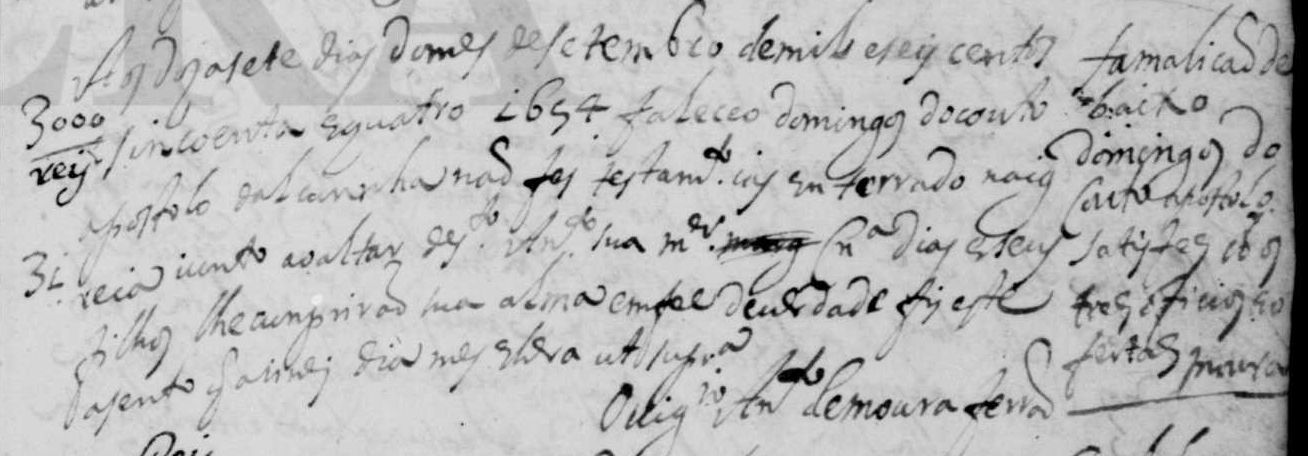 Aos dozasete dias do mes de setembro de mil e seis centos
sincoenta e quatro 1654 faleceo domingos do couto
apostolo dalcunha nad fes testamto. e ias enterrado naig
reia iunto aoaltar de s.to Ant.to sua mer. Cna dias e seus
filhos lhe cumprirad sua alma em fee de verdade fis este
asento e asinei dia mes e hera ut supra
O uigro Anto de moura ferrad
3000
reis
31
famalicad de
baixo
domingos do
Couto apostolo
satisfes cõ os
tres oficios e o
fertas moura